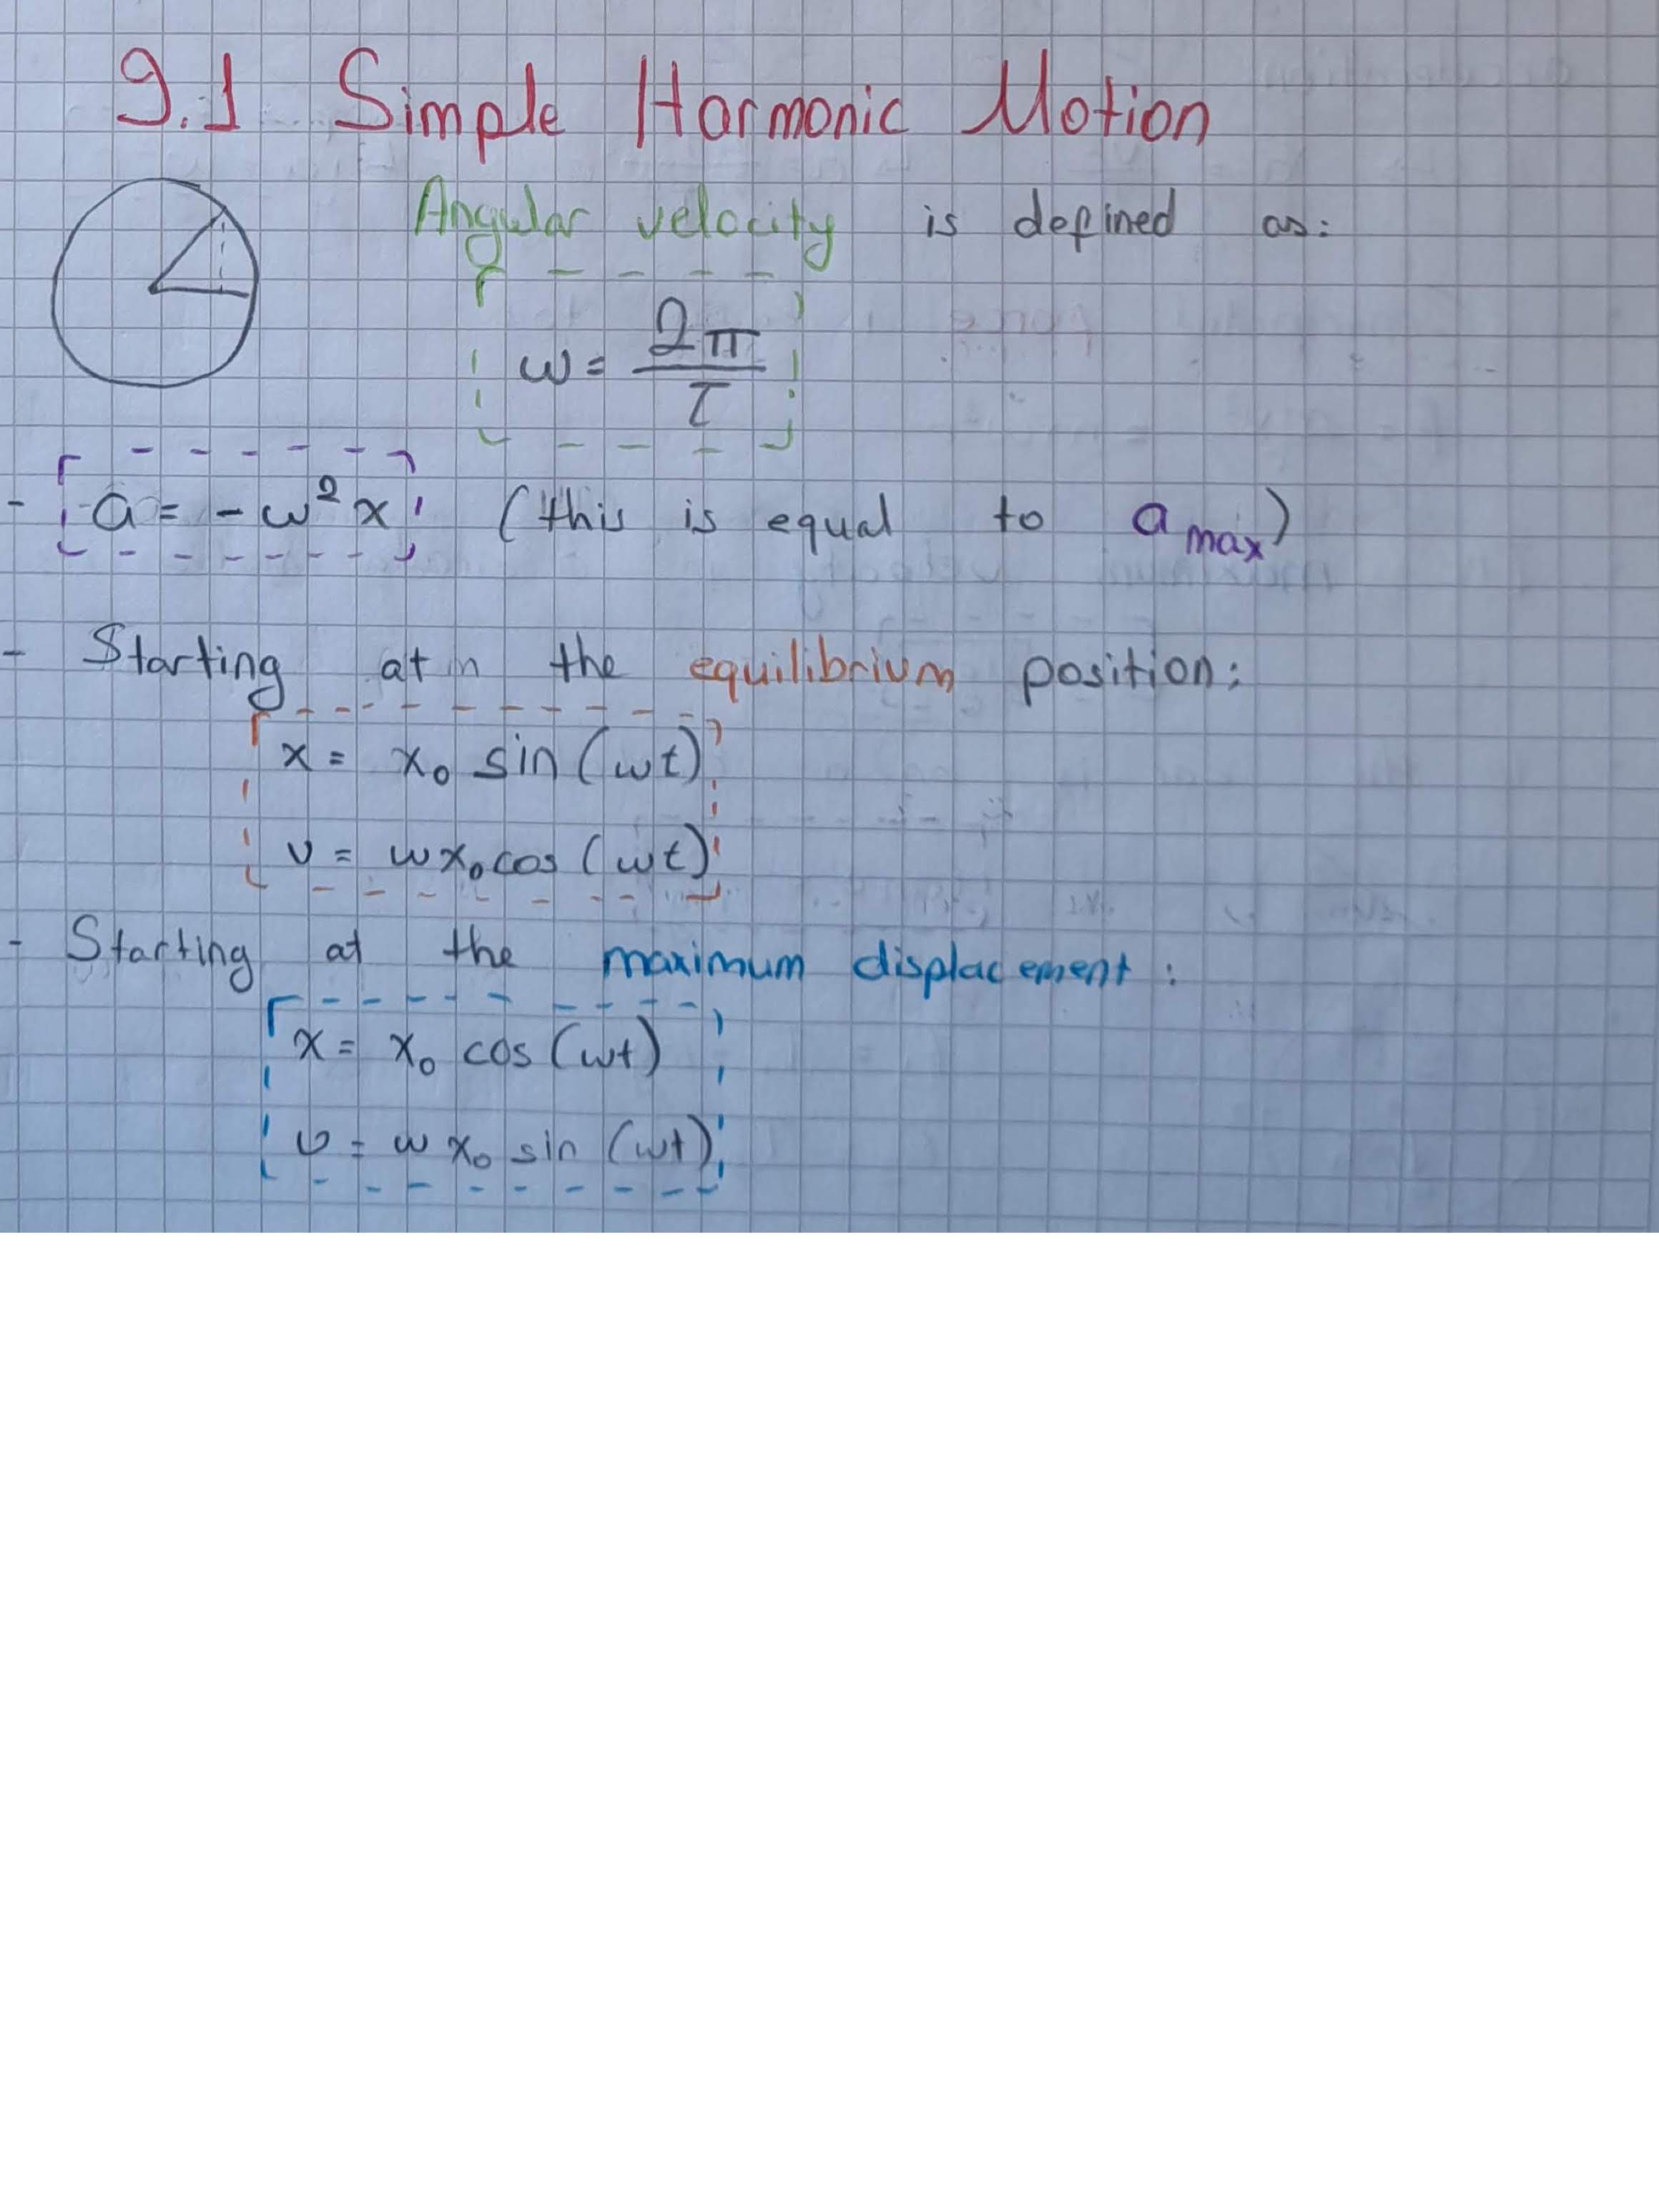 9.1 Simple Harmonic Motion
Angular velocity is defined as:
ω = 2π / T
- a = -ω² x (this is equal to a max)
- Starting at in the equilibrium position:
x = x₀ sin (ωt)
v = ωx₀ cos (ωt)
- Starting at the maximum displacement :
x = x₀ cos (ωt)
v = ω x₀ sin (ωt)